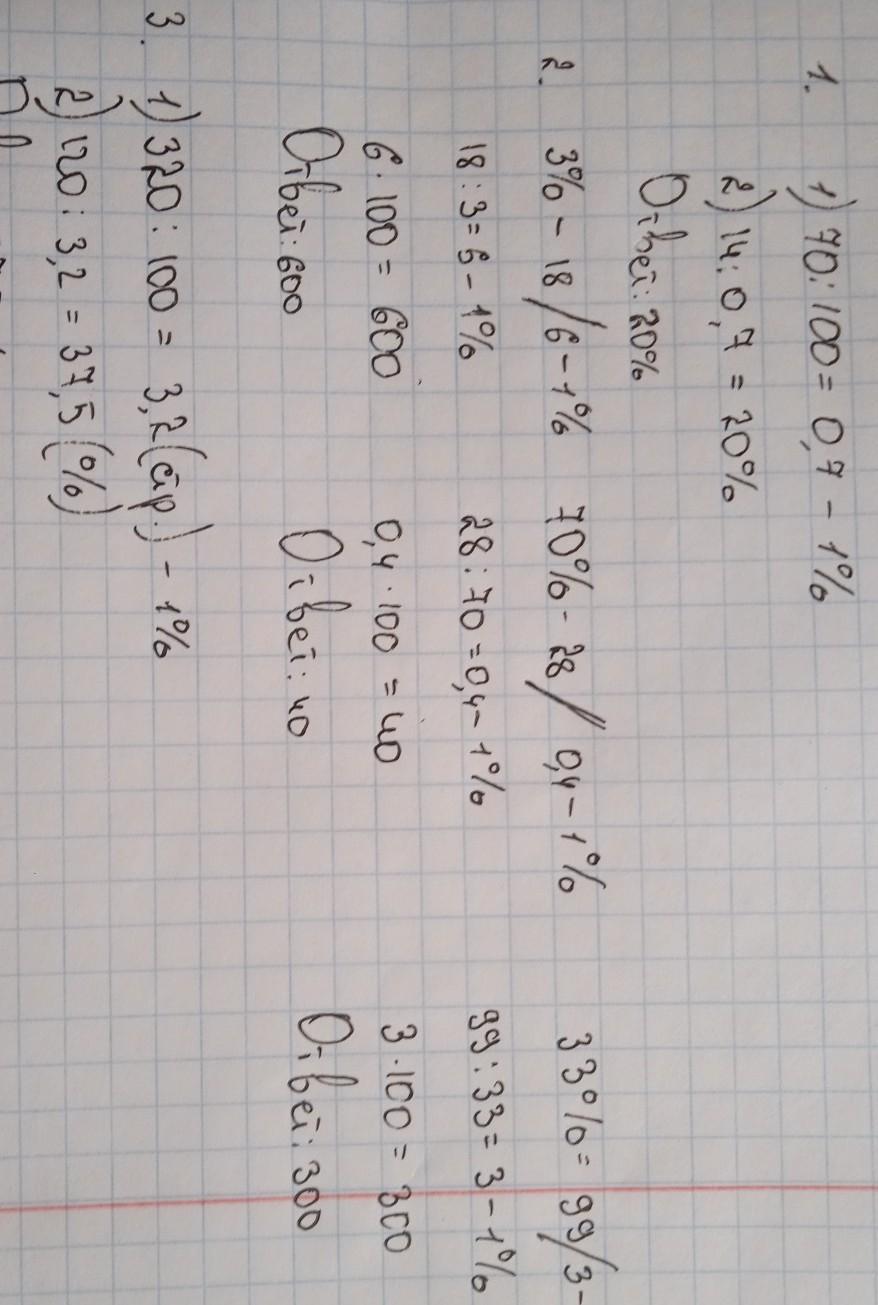 1. 1) 70:100 = 0,7 - 1%
2) 14:0,7 = 20%
Ответ: 20%
2. 3% - 18 / 6 - 1% 70% - 28 // 0,4 - 1% 33% = 99/3-
18:3 = 6 - 1% 28:70 = 0,4 - 1% 99:33 = 3 - 1%
6·100 = 600 0,4·100 = 40 3·100 = 300
Ответ: 600 Ответ: 40 Ответ: 300
3. 1) 320:100 = 3,2 (стр.) - 1%
2) 120:3,2 = 37,5 (%)